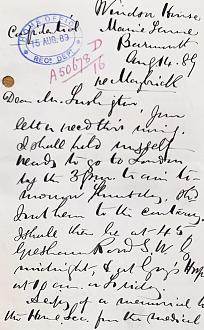 Windsor House
Marine Terrace
Barmouth
Aug 14. 89
HOME OFFICE
15 AUG. 89
RECD. DEPT.
A50678 D
16
re Maybrick
Dear Mr. Lushington,
Your
letter recd this mng.
I shall hold myself
ready to go to London
by the 3 pm train to
morrow Thursday,
I shall then be at 45
Road S.W.
midnight, & at Guy's Hosp
at 10 am on Friday.
a memorial to
the Home Sec. from the medical